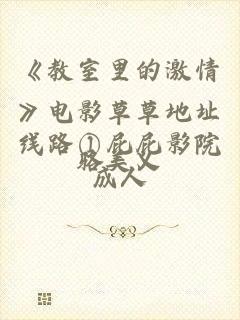 《教室里的激情
》电影草草地址
线路①屁屁影院
美
成人